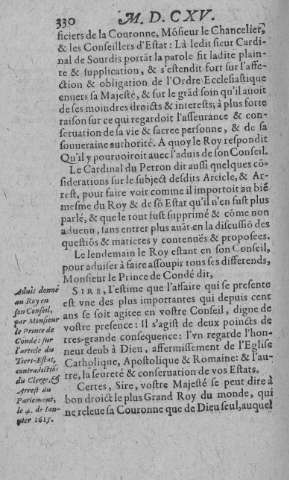 330 M. D. CXV.
ficiers de la Couronne, Mõsieur le Chancelier,
& les Conseillers d'Estat: Là ledit sieur Cardi-
nal de Sourdis portãt la parole fit ladite plain-
te & supplication, & s'estendit fort sur l'affe-
ction & obligation de l'Ordre Ecclesiastique
enuers sa Majesté, & sur le grãd soin qu'il auoit
de ses moindres droicts & interests, à plus forte
raison sur ce qui regardoit l'asseurance & con-
seruation de sa vie & sacree personne, & de sa
souueraine authorité. A quoy le Roy respondit
Qu'il y pouruoiroit auec l'aduis de son Conseil.
Le Cardinal du Perron dit aussi quelques cõ-
siderations sur le subject desdits Article, & Ar-
rest, pour faire voir comme il importoit au biẽ
mesme du Roy & de sõ Estat qu'il n'en fust plus
parlé, & que le tout fust supprimé & cõme non
aduenu, sans entrer plus auãt en la discussiõ des
questiõs & matieres y contenuës & proposees.
Le lendemain le Roy estant en son Conseil,
pour aduiser à faire assoupir tous ses differends,
Monsieur le Prince de Condé dit,
SIRE, I'estime que l'affaire qui se presente
est vne des plus importantes qui depuis cent
ans se soit agitee en vostre Conseil, digne de
vostre presence: Il s'agist de deux poincts de
tres-grande consequence: l'vn regarde l'hon-
neur deub à Dieu, affermissement de l'Eglise
Catholique, Apostolique & Romaine: & l'au-
tre, la seureté & conseruation de vos Estats.
Certes, Sire, vostre Majesté se peut dire à
bon droict le plus Grand Roy du monde, qui
ne releue sa Couronne que de Dieu seul, auquel
Aduis donné
au Roy en
son Conseil,
par Monsieur
le Prince de
Condé: sur
l'article du
Tiers-Estat,
contradictiõ
du Clergé, &
Arrest du
Parlement,
le 4. de Ian-
uier 1615.